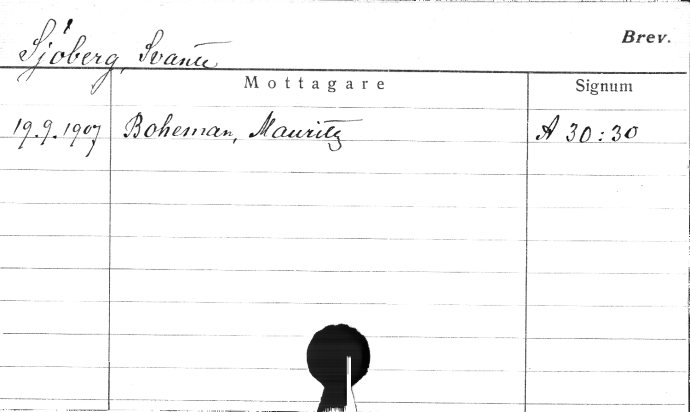 Brev.
Sjöberg, Svante
Mottagare Signum
19.9.1907 Boheman, Mauritz A 30:30